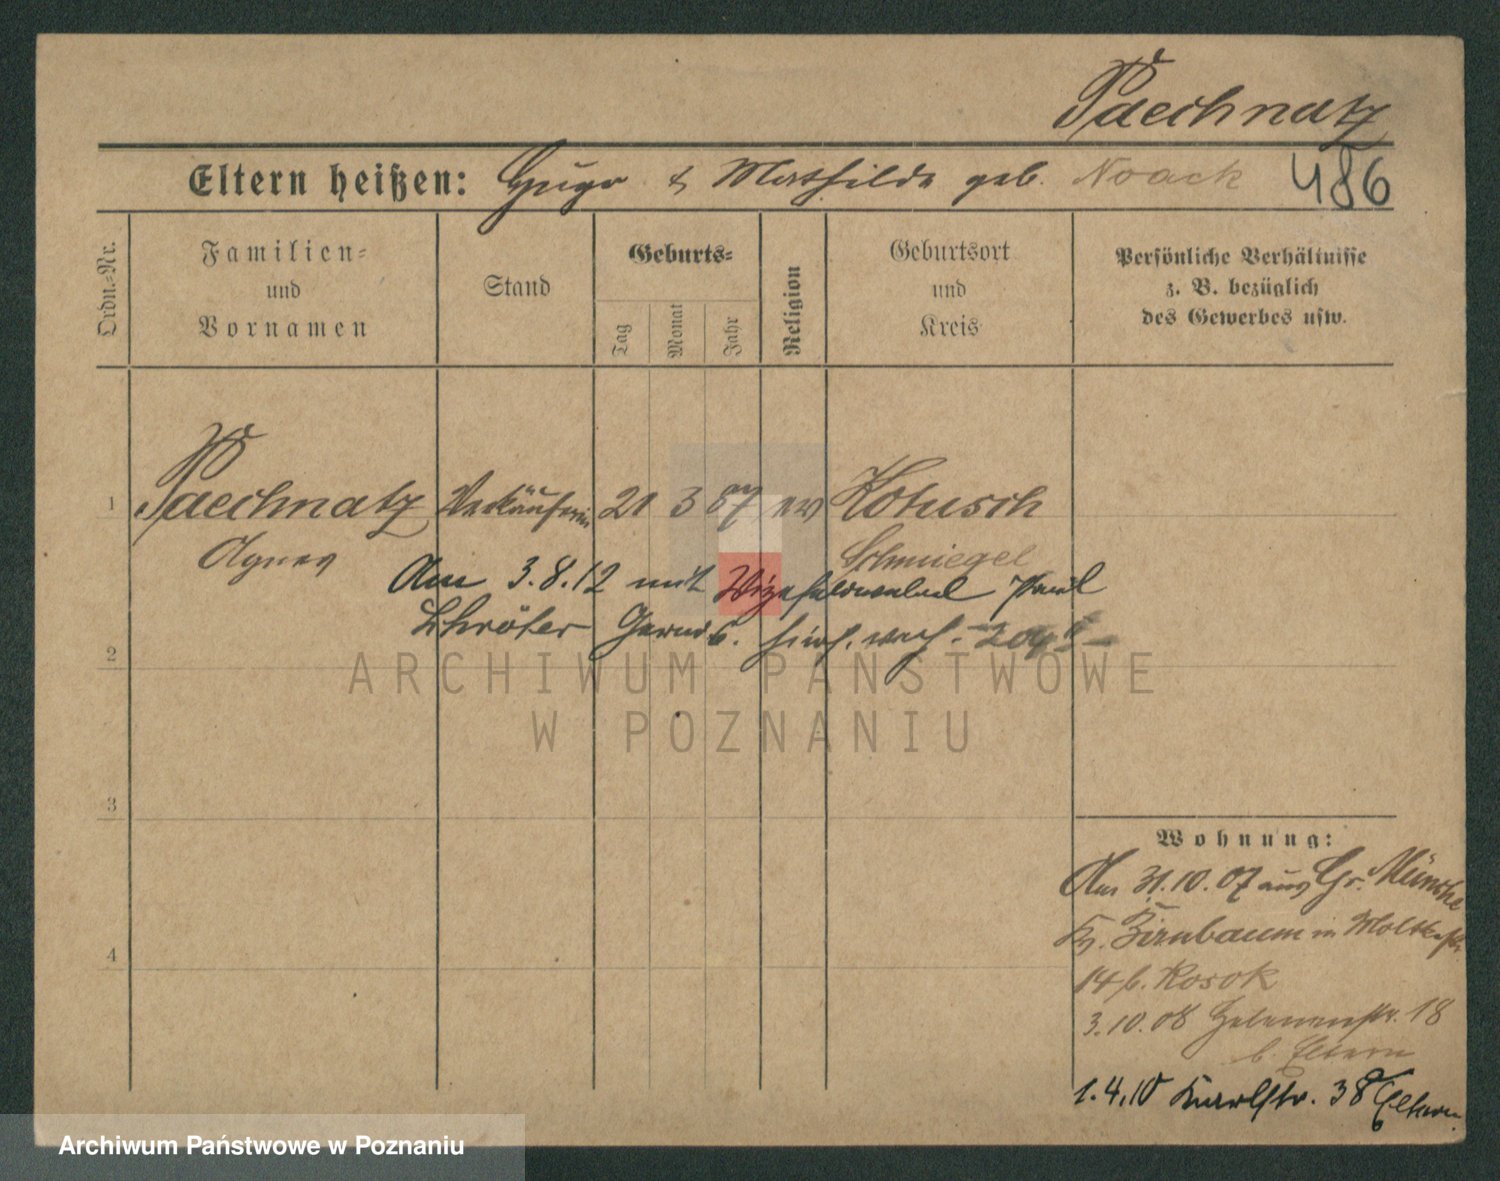 Paechnatz
Eltern heißen: Hugo & Mathilde geb. Noack 486
Ordn.-Nr.
Familien-
und
Vornamen
Stand
Geburts-
Tag
Monat
Jahr
Religion
Geburtsort
und
Kreis
Persönliche Verhältnisse
z. B. bezüglich
des Gewerbes usw.
1 Paechnatz Verkäuferin 21 3 87 ev Kotusch
Agnes Schmiegel
Am 3.8.12 mit Vizefeldwebel Paul
Schröter hies. verh.
2
ARCHIWUM PAŃSTWOWE
W POZNANIU
3
4
Wohnung:
Am 31.10.07 aus Gr. Münche
Kr. Birnbaum in Moltkestr.
14 b. Rosok
3.10.08 Helenenstr. 18
b. Eltern
1.4.10 Karlstr. 38 Eltern.
Archiwum Państwowe w Poznaniu